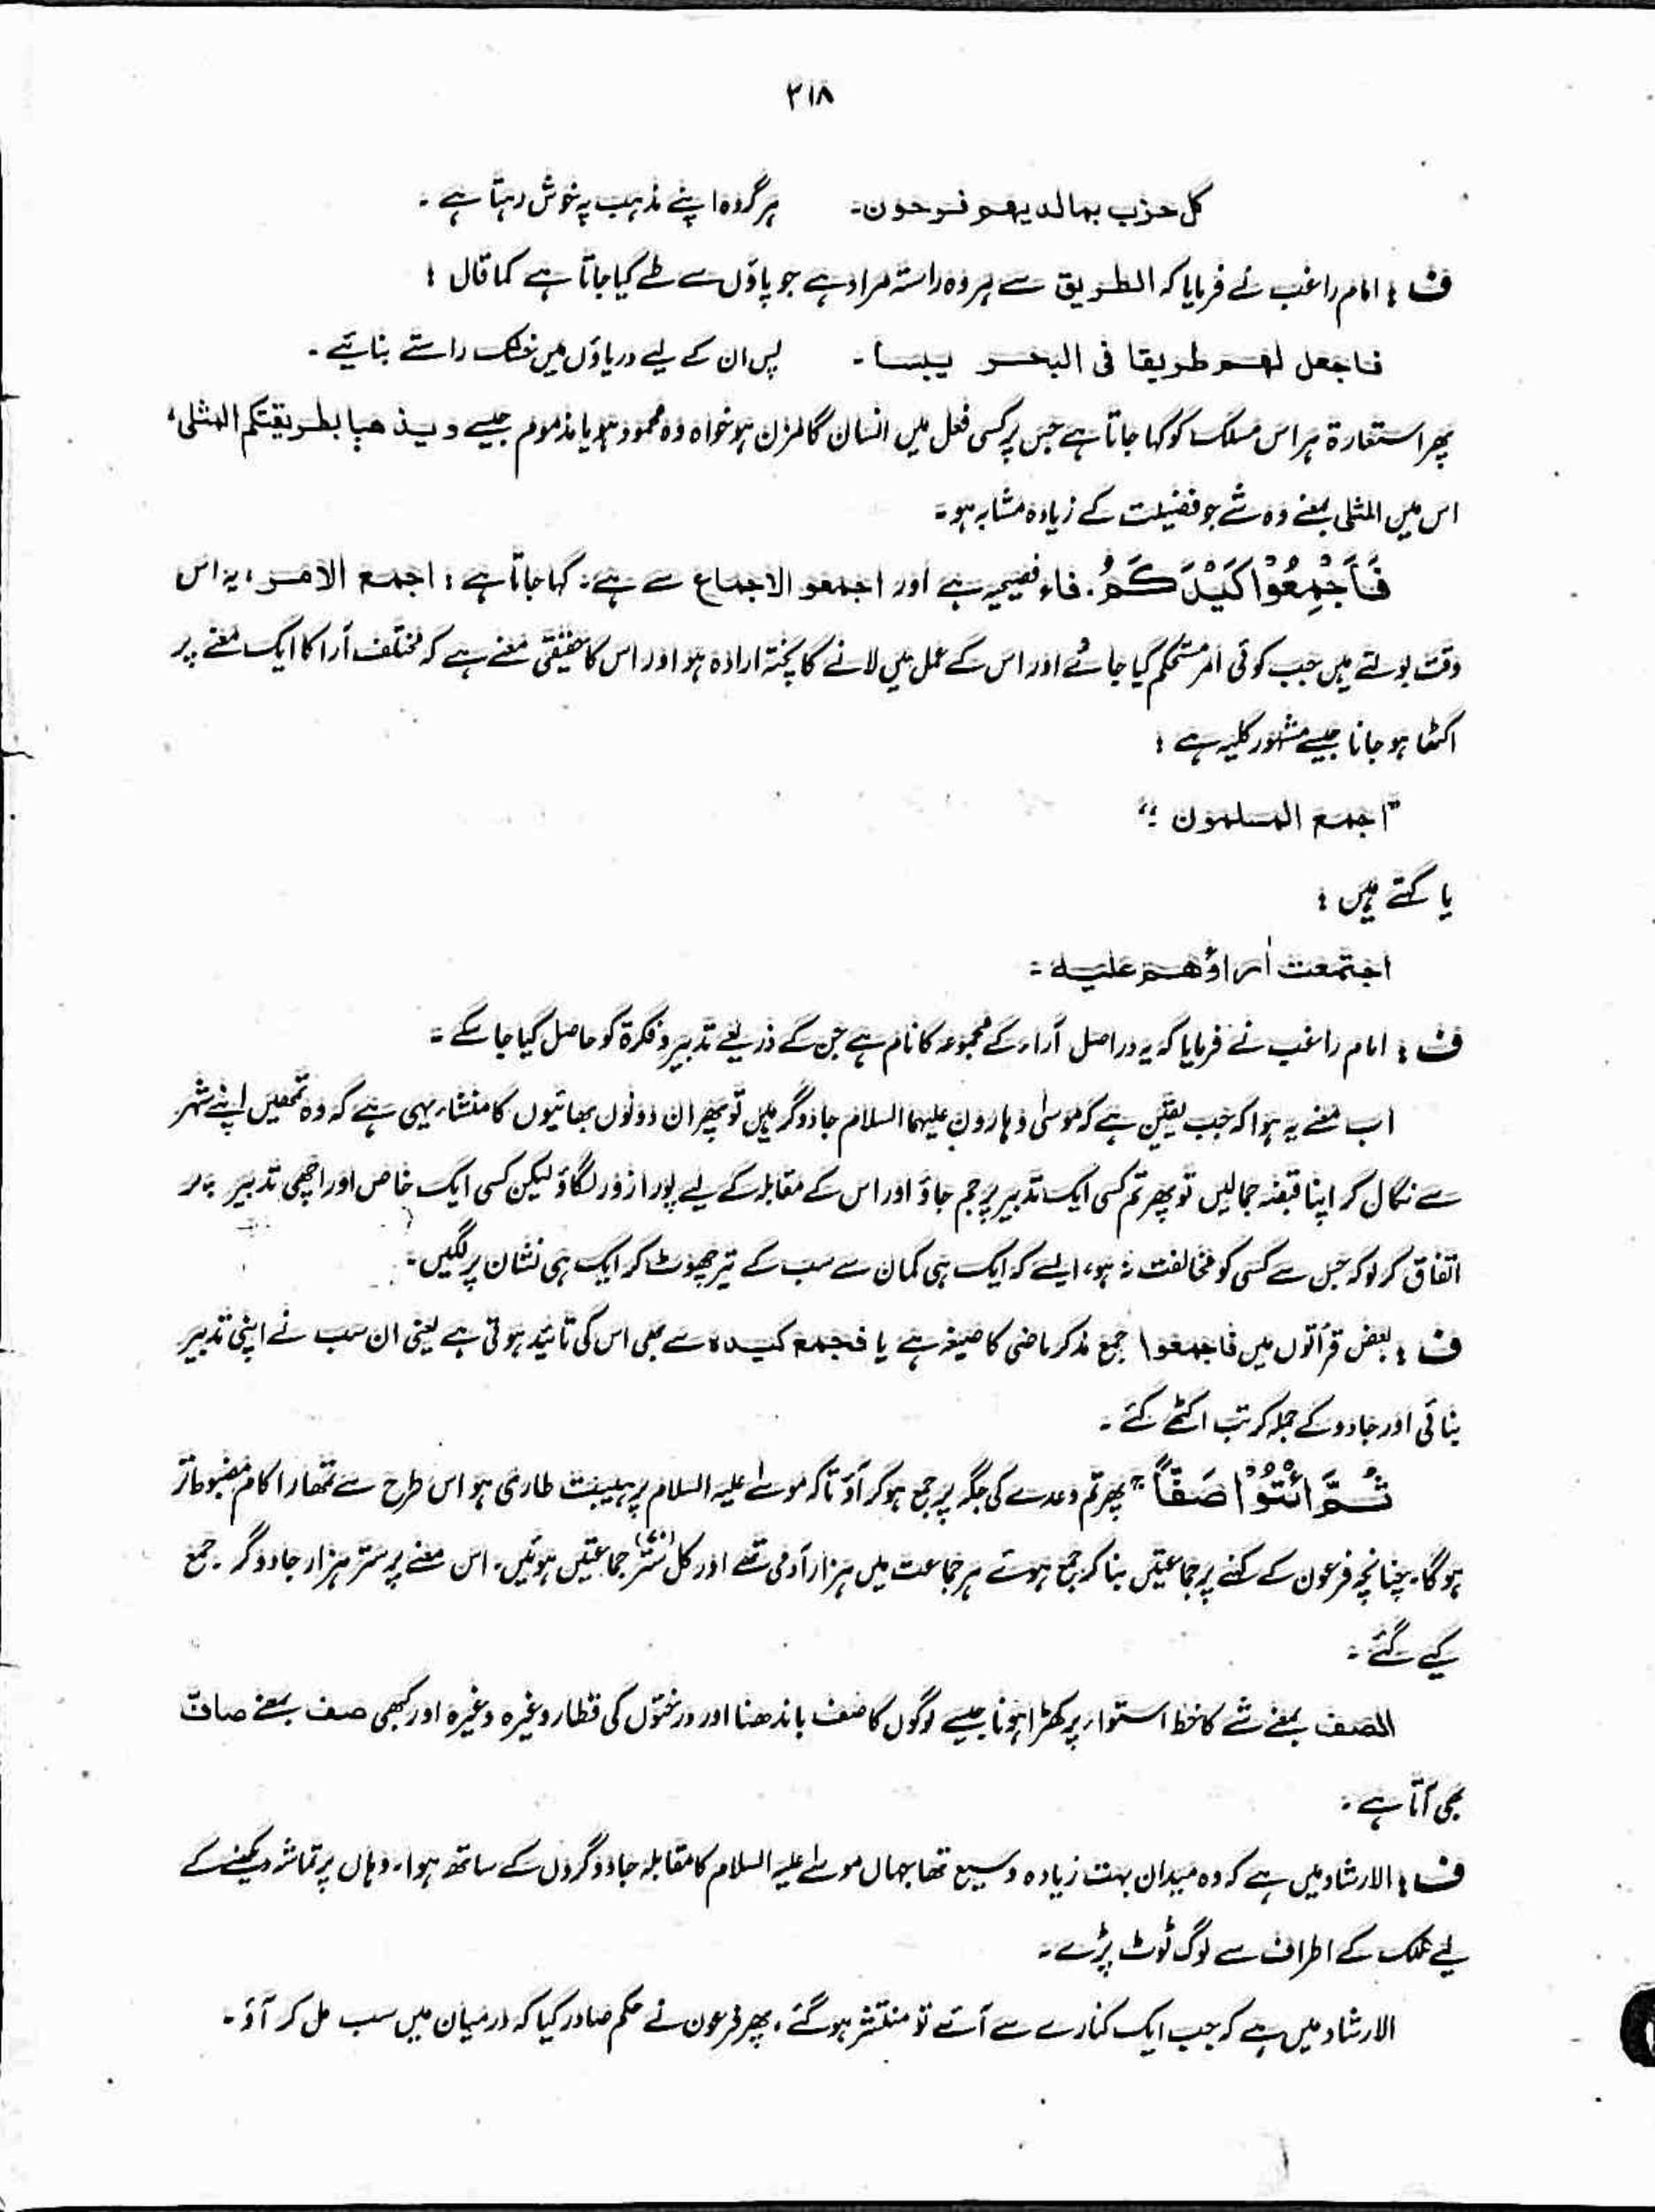 ٣١٨
کل حزب بما لدیھم فرحون۔ ہر گروہ اپنے مذہب پہ خوش رہتا ہے ۔
ف : امام راغب نے فرمایا کہ الطریق سے ہر وہ راستہ مراد ہے جو پاؤں سے طے کیا جاتا ہے کما قال :
فاجعل لھم طریقا فی البحر یبسا ۔ پس ان کے لیے دریاؤں میں خشک راستے بنائیے ۔
پھر استعارۃ ہر اس مسلک کو کہا جاتا ہے جس پر کسی فعل میں انسان گامزن ہو خواہ وہ محمود ہو یا مذموم جیسے ویذھبا بطریقتکم المثلی ،
اس میں المثلی بمعنے وہ شے جو فضیلت کے زیادہ مشابہ ہو ۔
فَاَجْمِعُوْا کَیْدَکُمْ ۔ فاء فصیحیہ ہے اور اجمعو الاجماع سے ہے ۔ کہا جاتا ہے : اجمع الامر ، یہ اس
وقت بولتے ہیں جب کوئی امر مستحکم کیا جائے اور اس کے عمل میں لانے کا پختہ ارادہ ہو اور اس کا حقیقی معنے ہے کہ مختلف آرا کا ایک معنے پر
اکٹھا ہو جانا جیسے مشہور کلیہ ہے :
"اجمع المسلمون :"
یا کہتے ہیں :
اجتمعت اٰراؤھم علیہ ۔
ف : امام راغب نے فرمایا کہ یہ دراصل آراء کے مجموعہ کا نام ہے جن کے ذریعے تدبیر و فکرۃ کو حاصل کیا جا سکے ۔
اب معنے یہ ہوا کہ جب یقین ہے کہ موسٰی و ہارون علیہما السلام جادوگر ہیں تو پھر ان دونوں بھائیوں کا منشاء یہی ہے کہ وہ تمھیں اپنے شہر
سے نکال کر اپنا قبضہ جمالیں تو پھر تم کسی ایک تدبیر پر جم جاؤ اور اس کے مقابلہ کے لیے پورا زور لگاؤ لیکن کسی ایک خاص اور اچھی تدبیر پر
اتفاق کر لو کہ جس سے کسی کو مخالفت نہ ہو ، ایسے کہ ایک ہی کمان سے سب کے تیر چھوٹ کر ایک ہی نشان پر لگیں ۔
ف : بعض قرأتوں میں فاجمعوا جمع مذکر ماضی کا صیغہ ہے یا فجمع کیدہ سے بھی اس کی تائید ہوتی ہے یعنی ان سب نے اپنی تدبیر
بنائی اور جادو کے جملہ کرتب اکٹھے کئے ۔
ثُمَّ ائْتُوْا صَفًّا " پھر تم وعدے کی جگہ پر جمع ہو کر آؤ تاکہ موسٰے علیہ السلام پر ہیبت طاری ہو اس طرح سے تمھارا کام مضبوط تر
ہو گا ۔ چنانچہ فرعون کے کہنے پر جماعتیں بنا کر جمع ہوئے ہر جماعت میں ہزار آدمی تھے اور کل ستر جماعتیں ہوئیں ۔ اس معنے پر ستر ہزار جادوگر جمع
کیے گئے ۔
الصف بمعنے شے کا خط استواء پر کھڑا ہونا جیسے لوگوں کا صف باندھنا اور درختوں کی قطار وغیرہ وغیرہ اور کبھی صف بمعنے صافّ
بھی آتا ہے ۔
ف : الارشاد میں ہے کہ وہ میدان بہت زیادہ وسیع تھا جہاں موسٰے علیہ السلام کا مقابلہ جادوگروں کے ساتھ ہوا ، وہاں پر تماشہ دیکھنے کے
لیے ملک کے اطراف سے لوگ ٹوٹ پڑے ۔
الارشاد میں ہے کہ جب ایک کنارے سے آئے تو منتشر ہو گئے ، پھر فرعون نے حکم صادر کیا کہ درمیان میں سب مل کر آؤ ۔